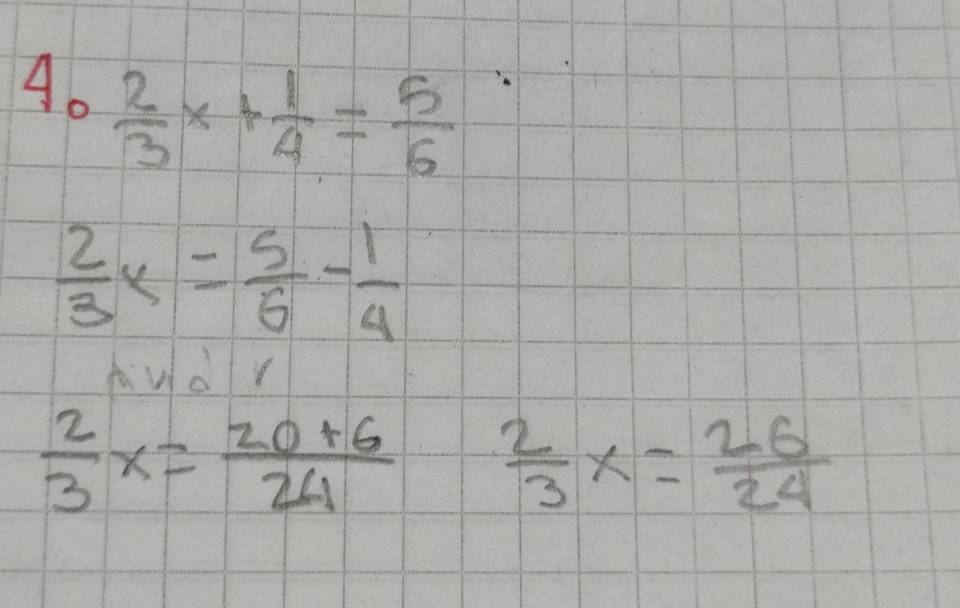 4. 2/3 x + 1/4 = 5/6
2/3 x = 5/6 - 1/4
2/3 x = 20+6/24 2/3 x = 26/24